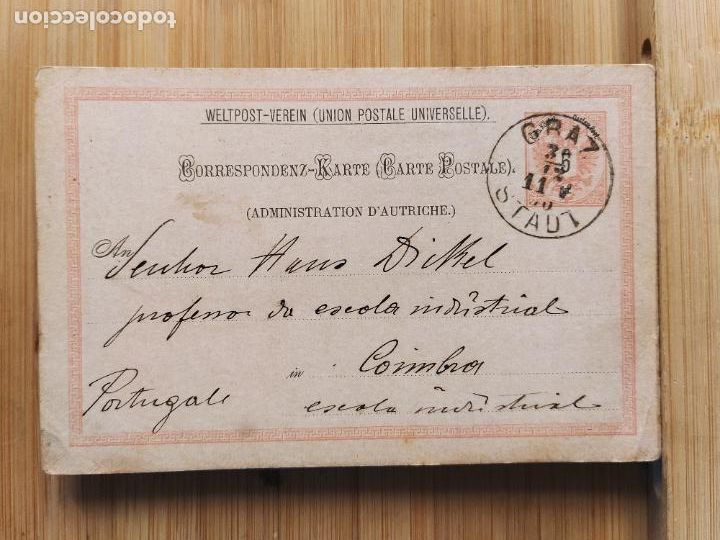 todocoleccion
WELTPOST-VEREIN (UNION POSTALE UNIVERSELLE).
CORRESPONDENZ-KARTE (CARTE POSTALE).
(ADMINISTRATION D'AUTRICHE.)
GRAZ
STADT
An Senhor Hans Dickel
professor da escola indústrial
in Coimbra
Portugale
escola indústrial